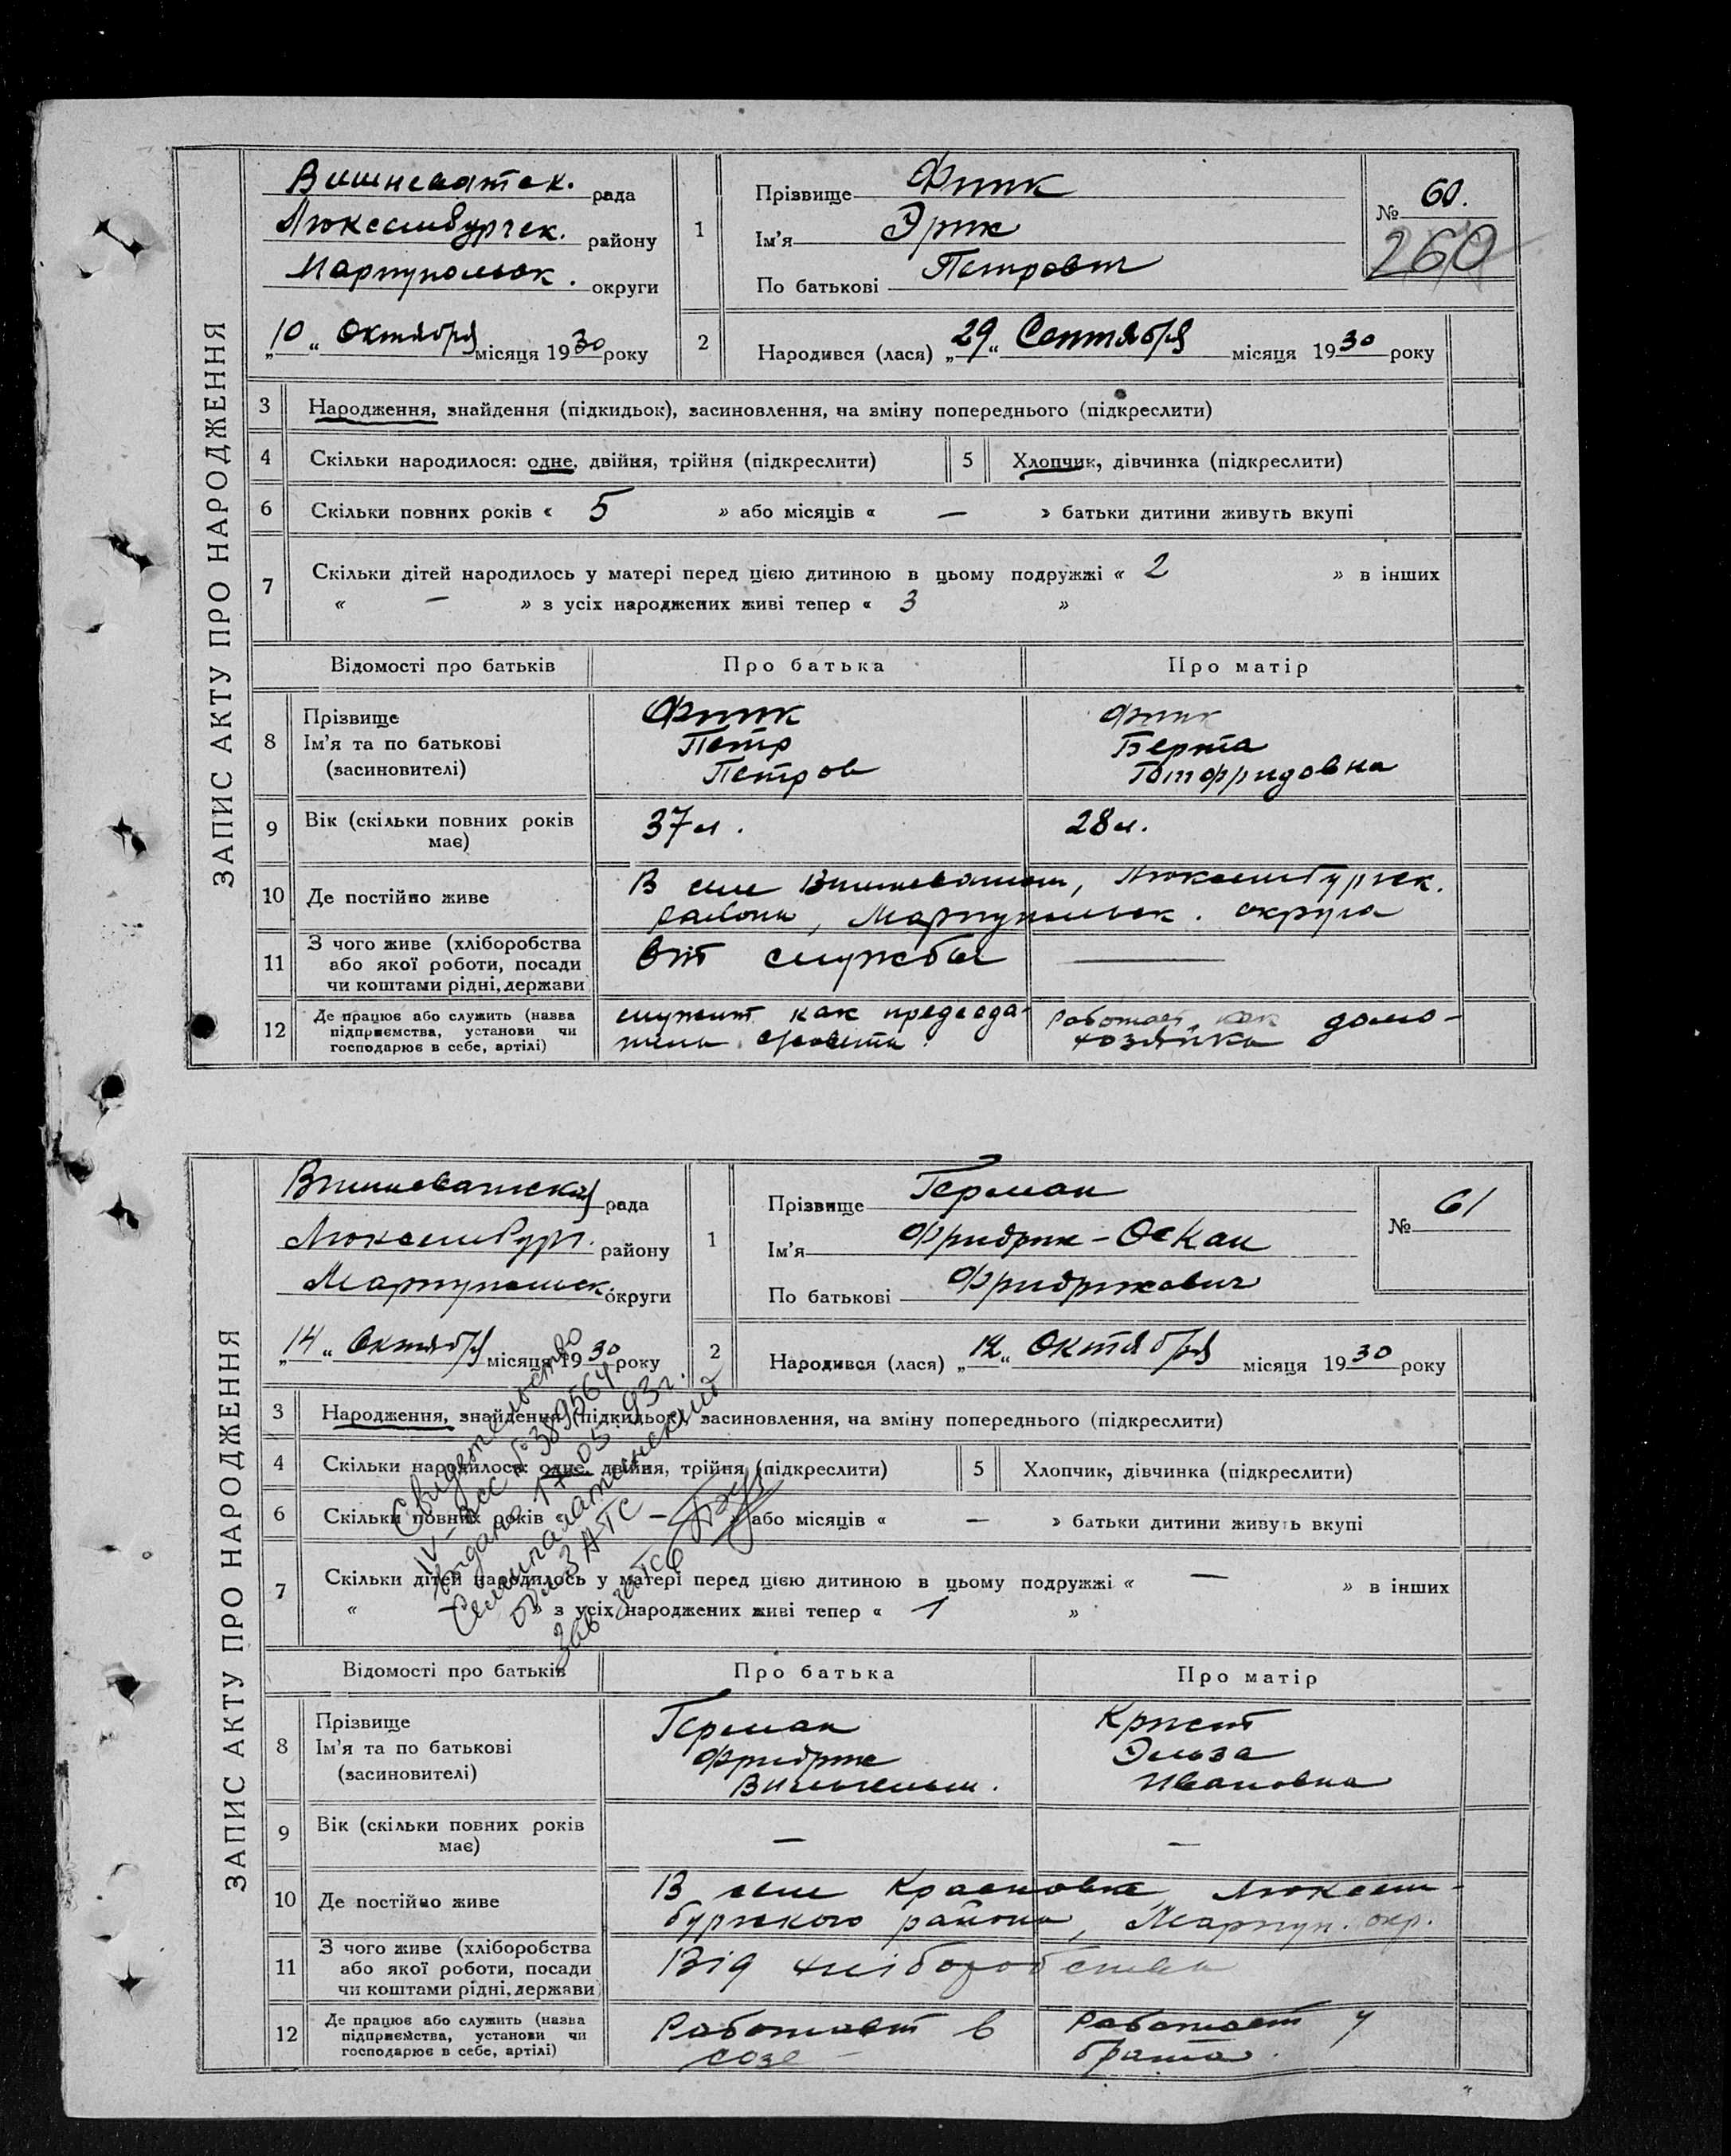 ЗАПИС АКТУ ПРО НАРОДЖЕННЯ
Вишневатск. рада
Люксембургск. району
Мариупольск. округи
„10“ Октября місяця 1930 року
1 Прізвище Финк
Ім’я Эрик
По батькові Петрович
№ 60.
260
2 Народився (лася) „29“ Сентября місяця 1930 року
3 Народження, знайдення (підкидьок), засиновлення, на зміну попереднього (підкреслити)
4 Скільки народилося: одне, двійня, трійня (підкреслити) 5 Хлопчик, дівчинка (підкреслити)
6 Скільки повних років « 5 » або місяців « — » батьки дитини живуть вкупі
7 Скільки дітей народилось у матері перед цією дитиною в цьому подружжі « 2 » в інших
« — » з усіх народжених живі тепер « 3 »
Відомості про батьків Про батька Про матір
8 Прізвище Финк Финк
Ім’я та по батькові Петр Берта
(засиновителі) Петров Готфридовна
9 Вік (скільки повних років має) 37 л. 28 л.
10 Де постійно живе В селе Вишневатом, Люксембургск.
района, Мариупольск. округа
11 З чого живе (хліборобства
або якої роботи, посади
чи коштами рідні, держави От службы —
12 Де працює або служить (назва
підприємства, установи чи
господарює в себе, артілі) служит как председа-
теля с/совета. Работает как домо-
хозяйка
ЗАПИС АКТУ ПРО НАРОДЖЕННЯ
Вишневатская рада
Люксембург. району
Мариупольск округи
„14“ Октября місяця 1930 року
1 Прізвище Герман
Ім’я Фридрих-Оскал
По батькові Фридрихович
№ 61
2 Народився (лася) „12“ Октября місяця 1930 року
3 Народження, знайдення (підкидьок), засиновлення, на зміну попереднього (підкреслити)
4 Скільки народилося: одне, двійня, трійня (підкреслити) 5 Хлопчик, дівчинка (підкреслити)
6 Скільки повних років « — » або місяців « — » батьки дитини живуть вкупі
7 Скільки дітей народилось у матері перед цією дитиною в цьому подружжі « — » в інших
« » з усіх народжених живі тепер « 1 »
Свидетельство
№ 389564
выдано 17.05.93г.
Семипалатинский
ЗАГС
Зав ЗАГС
Відомості про батьків Про батька Про матір
8 Прізвище Герман Крист
Ім’я та по батькові Фридрих Эльза
(засиновителі) Вильгельм. Ивановна
9 Вік (скільки повних років має) — —
10 Де постійно живе В селе Красновке, Люксем-
бургского района, Мариуп. окр.
11 З чого живе (хліборобства
або якої роботи, посади
чи коштами рідні, держави Від хліборобства
12 Де працює або служить (назва
підприємства, установи чи
господарює в себе, артілі) Работает в
созе Работает у
брата.